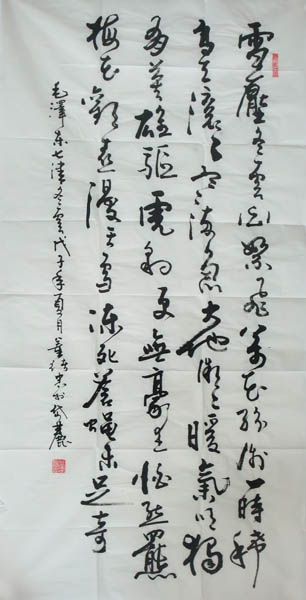 雪壓冬雲白絮飛萬花紛謝一時稀
高天滾々寒流急大地微々暖氣吹獨
有英雄驅虎豹更無豪杰怕熊羆
梅花歡喜漫天雪凍死蒼蠅未足奇
毛澤東七律冬雲戊子年夏月董於岱麓